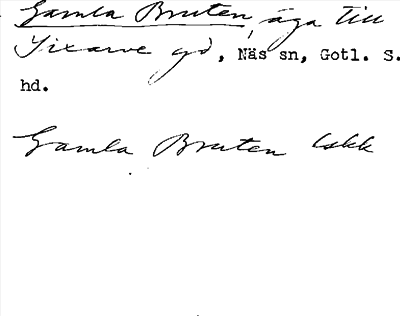 Gamla Bruten, äga till
Sixarve gd, Näs sn, Gotl. S.
hd.
Gamla Bruten Iskk